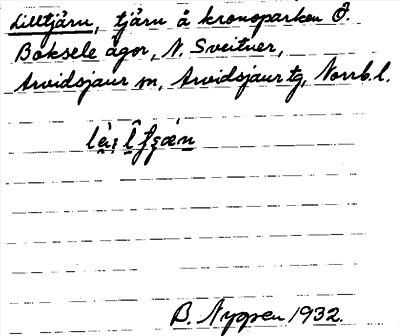 Lilltjärn, tjärn å kronoparken Ö.
Baksele ägor, N. Sveitver,
Arvidsjaur sn, Arvidsjaur tg, Norrb. l.
B. Nyppen 1932.